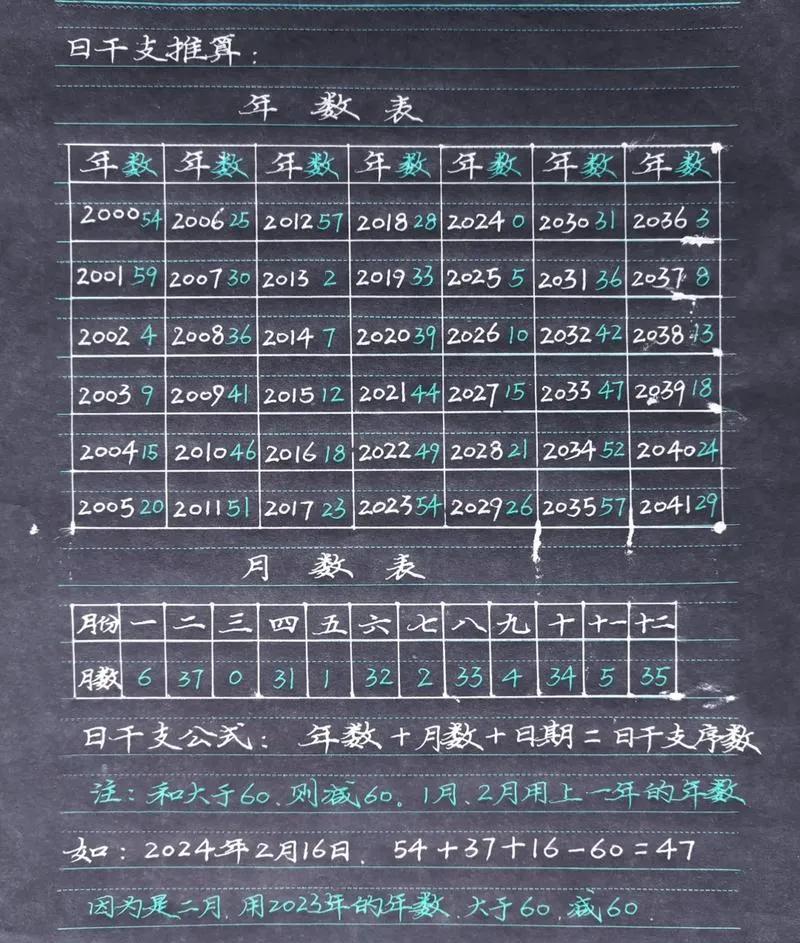 日干支推算:
年数表
年数 年数 年数 年数 年数 年数 年数
2000 54 2006 25 2012 57 2018 28 2024 0 2030 31 2036 3
2001 59 2007 30 2013 2 2019 33 2025 5 2031 36 2037 8
2002 4 2008 36 2014 7 2020 39 2026 10 2032 42 2038 13
2003 9 2009 41 2015 12 2021 44 2027 15 2033 47 2039 18
2004 15 2010 46 2016 18 2022 49 2028 21 2034 52 2040 24
2005 20 2011 51 2017 23 2023 54 2029 26 2035 57 2041 29
月数表
月份 一 二 三 四 五 六 七 八 九 十 十一 十二
月数 6 37 0 31 1 32 2 33 4 34 5 35
日干支公式: 年数+月数+日期=日干支序数
注:和大于60、则减60。1月、2月用上一年的年数
如:2024年2月16日、 54+37+16-60=47
因为是二月、用2023年的年数、大于60、减60